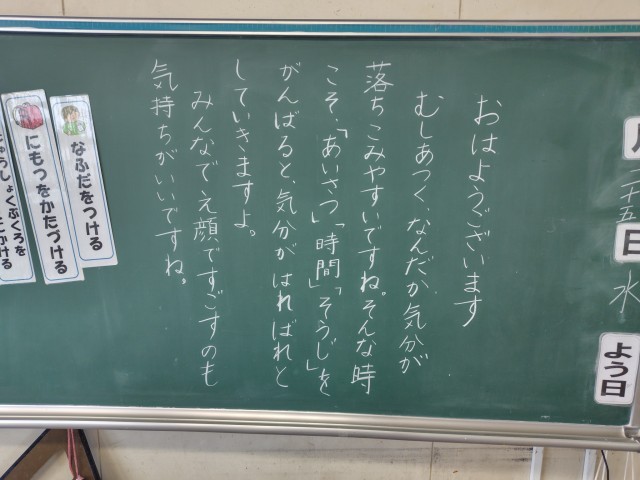 月
二十五
日
水
よう日
おはようございます
むしあつく、なんだか気分が
落ちこみやすいですね。そんな時
こそ、「あいさつ」「時間」「そうじ」を
がんばると、気分がはればれと
していきますよ。
みんなでえ顔ですごすのも
気持ちがいいですね。
なふだをつける
にもつをかたづける